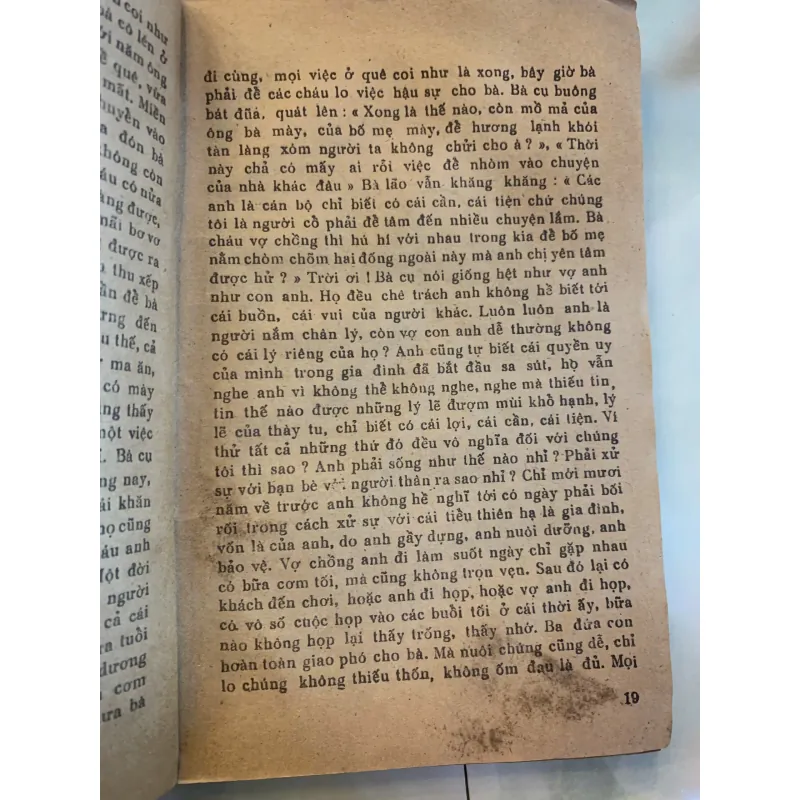 coi như
bà cô lên ở
năm ông
quê, vừa
mất. Miền
chuyển vào
đón bà
không còn
cháu có nửa
được,
bơ vơ
được ra
thu xếp
để bà
đến
thế, cả
ma ăn,
có mày
thấy
một việc
Bà cụ
nay,
khăn
họ cũng
anh
Một đời
người
cả cái
tuổi
dương
cơm
bà
đi cùng, mọi việc ở quê coi như là xong, bây giờ bà
phải để các cháu lo việc hậu sự cho bà. Bà cụ buông
bát đũa, quát lên : « Xong là thế nào, còn mồ mả của
ông bà mày, của bố mẹ mày, để hương lạnh khói
tàn làng xóm người ta không chửi cho à ? », « Thời
này chả có mấy ai rỗi việc để nhòm vào chuyện
của nhà khác đâu » Bà lão vẫn khăng khăng : « Các
anh là cán bộ chỉ biết có cái cần, cái tiện chứ chúng
tôi là người cổ phải để tâm đến nhiều chuyện lắm. Bà
cháu vợ chồng thì hú hí với nhau trong kia để bố mẹ
nằm chòm chõm hai đống ngoài này mà anh chị yên tâm
được hử ? » Trời ơi ! Bà cụ nói giống hệt như vợ anh
như con anh. Họ đều chê trách anh không hề biết tới
cái buồn, cái vui của người khác. Luôn luôn anh là
người nắm chân lý, còn vợ con anh dễ thường không
có cái lý riêng của họ ? Anh cũng tự biết cái quyền uy
của mình trong gia đình đã bắt đầu sa sút, họ vẫn
nghe anh vì không thể không nghe, nghe mà thiếu tin,
tin thế nào được những lý lẽ đượm mùi khổ hạnh, lý
lẽ của thày tu, chỉ biết có cái lợi, cái cần, cái tiện. Ví
thử tất cả những thứ đó đều vô nghĩa đối với chúng
tôi thì sao ? Anh phải sống như thế nào nhỉ ? Phải xử
sự với bạn bè với người thân ra sao nhỉ ? Chỉ mới mươi
năm về trước anh không hề nghĩ tới có ngày phải bối
rối trong cách xử sự với cái tiểu thiên hạ là gia đình,
vốn là của anh, do anh gầy dựng, anh nuôi dưỡng, anh
bảo vệ. Vợ chồng anh đi làm suốt ngày chỉ gặp nhau
có bữa cơm tối, mà cũng không trọn vẹn. Sau đó lại có
khách đến chơi, hoặc anh đi họp, hoặc vợ anh đi họp,
có vô số cuộc họp vào các buổi tối ở cái thời ấy, bữa
nào không họp lại thấy trống, thấy nhớ. Ba đứa con
hoàn toàn giao phó cho bà. Mà nuôi chúng cũng dễ, chỉ
lo chúng không thiếu thốn, không ốm đau là đủ. Mọi
19